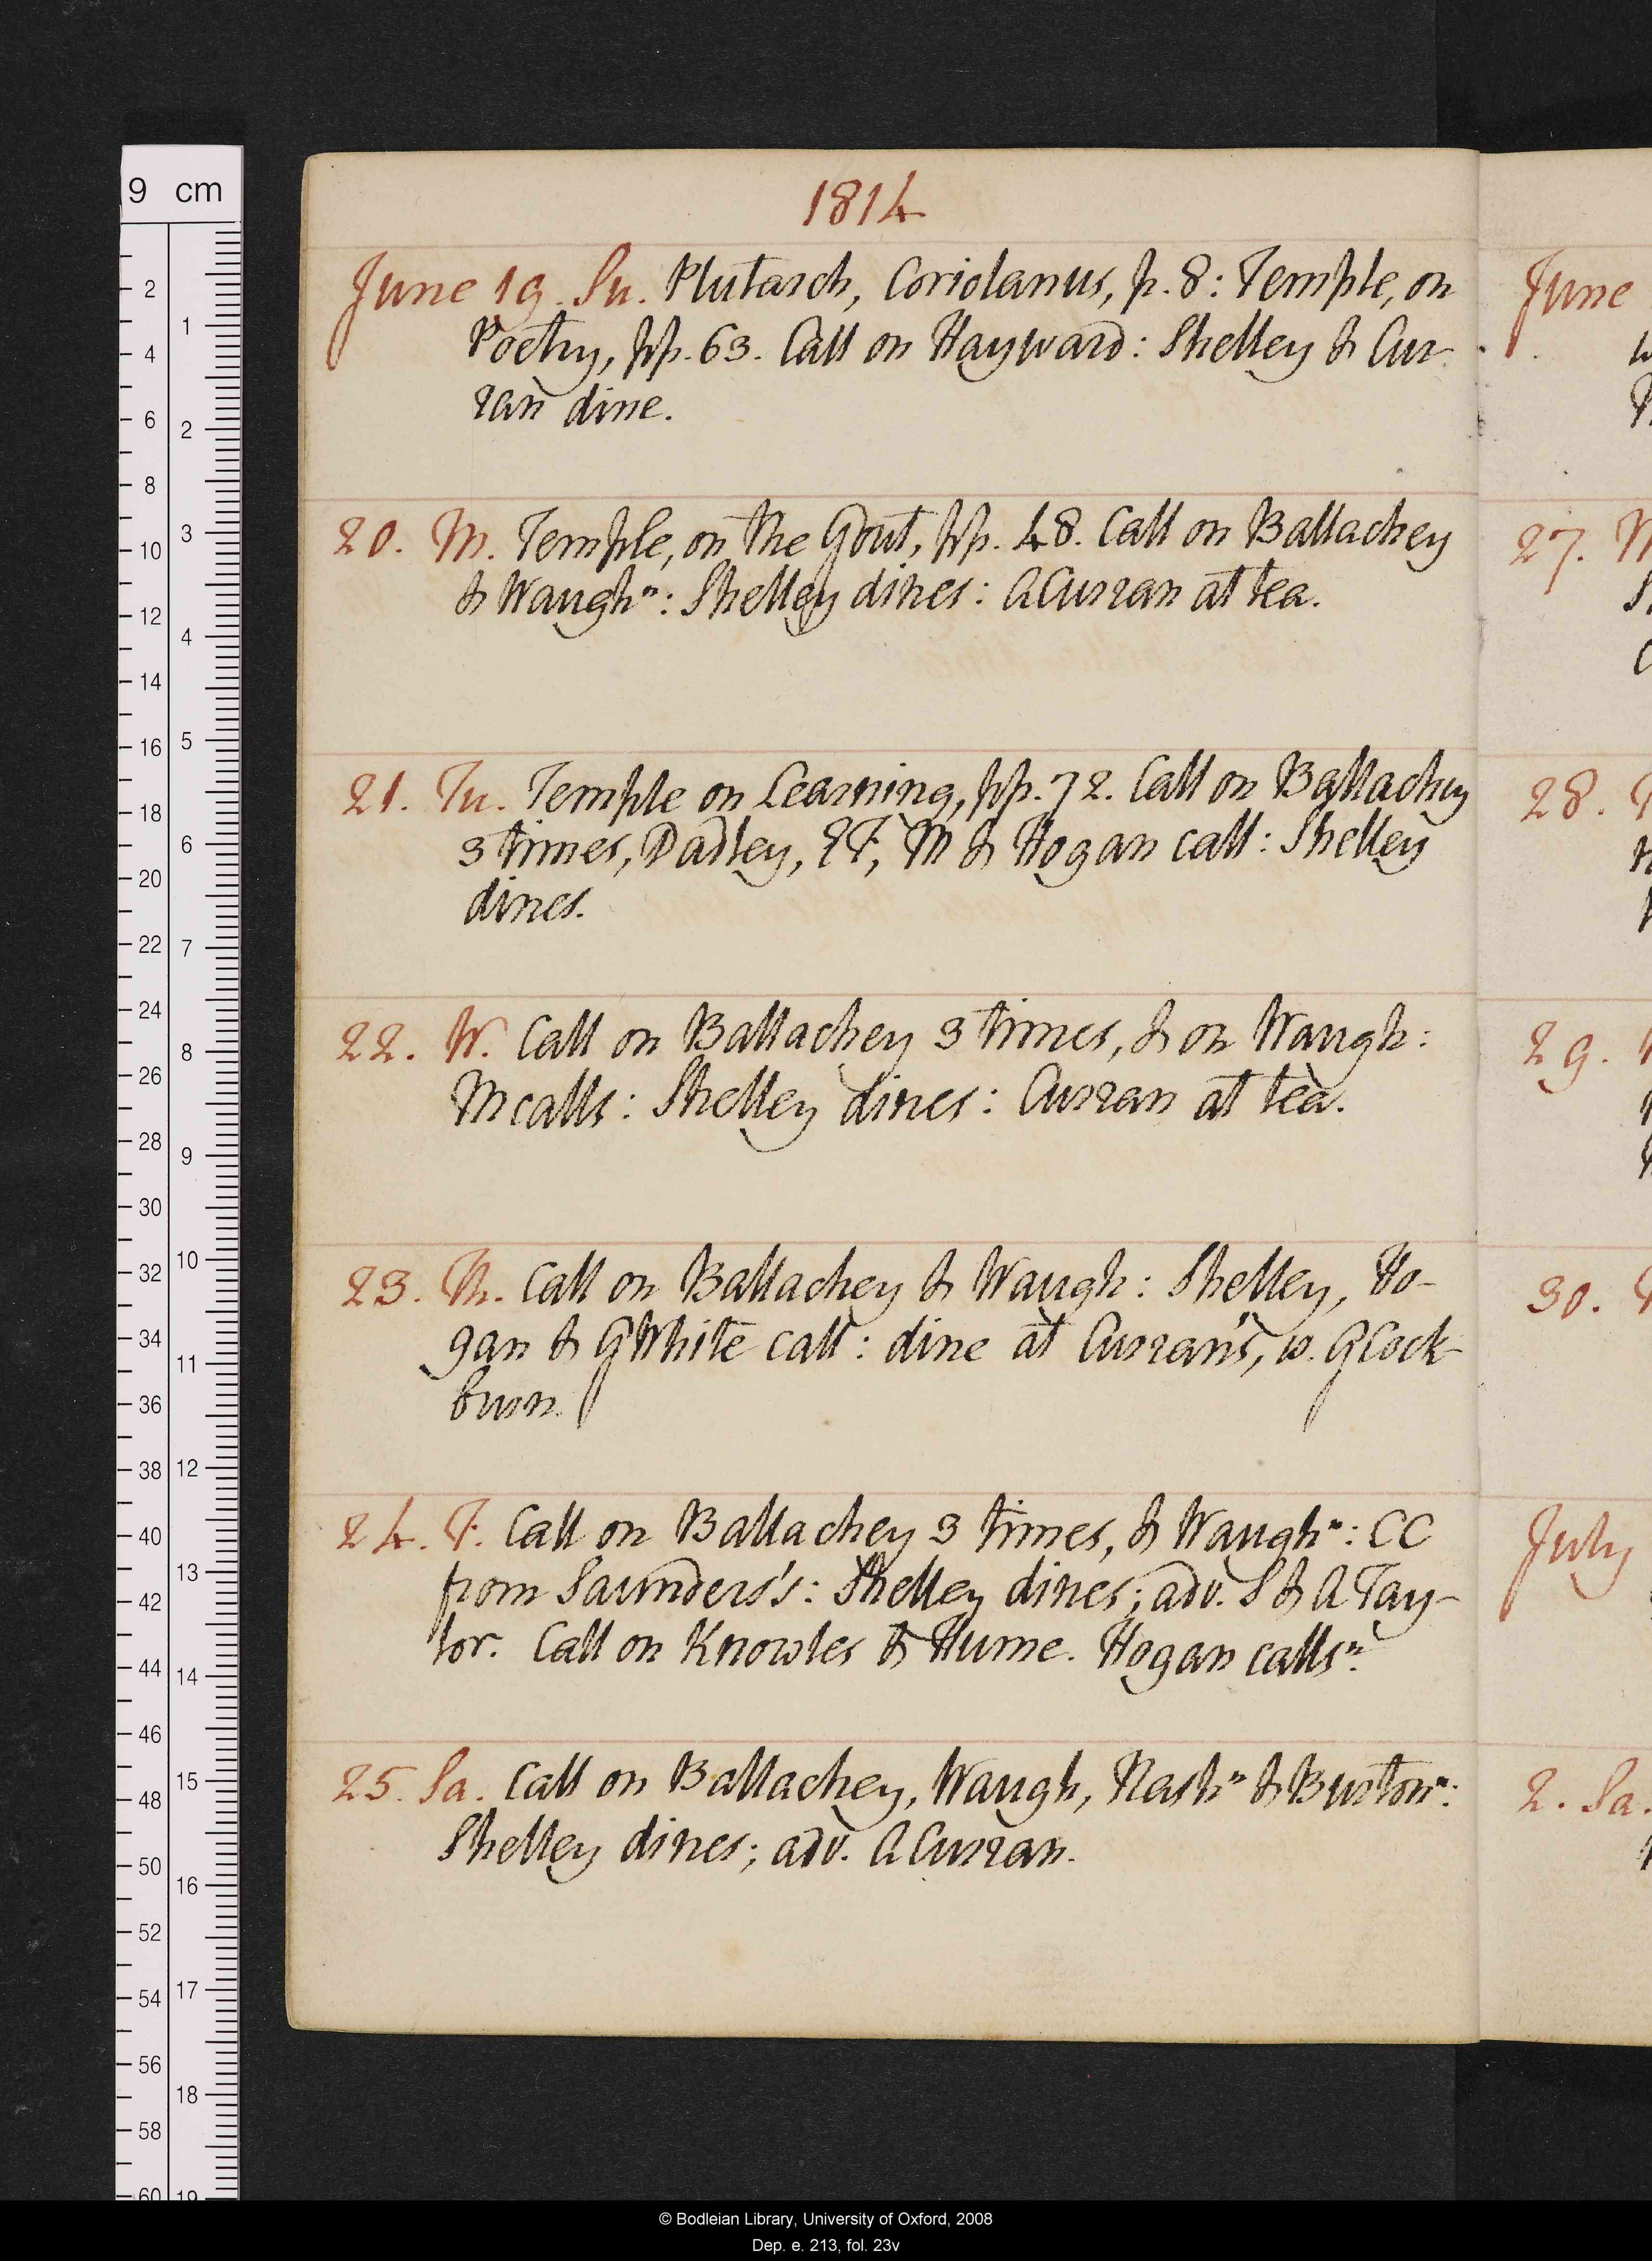 1814
June 19. Su. Plutarch, Coriolanus, p. 8: Temple, on
Poetry, pp. 63. Call on Hayward: Shelley & Cur-
ran dine.
20. M. Temple, on the Gout, pp. 48. Call on Ballachey
& Waugh n: Shelley dines: A Curran at tea.
21. Tu. Temple on Learning, pp. 72. Call on Ballachey
3 times, Dadley, EF, M & Hogan call: Shelley
dines.
22. W. Call on Ballachey 3 times, & on Waugh:
M calls: Shelley dines: Curran at tea.
23. Th. Call on Ballachey & Waugh: Shelley, Ho-
gan & G White call: dine at Curran's, w. G Cock-
burn.
24. F. Call on Ballachey 3 times, & Waugh n: CC
from Saunders's: Shelley dines; adv. S & A Tay-
lor. Call on Knowles & Hume. Hogan calls n.
25. Sa. Call on Ballachey, Waugh, Nash n & Burton n:
Shelley dines; adv. A Curran.
June
27.
28.
29.
30.
July
2. Sa.
9 cm
2
4
6
8
10
12
14
16
18
20
22
24
26
28
30
32
34
36
38
40
42
44
46
48
50
52
54
56
58
60
1
2
3
4
5
6
7
8
9
10
11
12
13
14
15
16
17
18
19
© Bodleian Library, University of Oxford, 2008
Dep. e. 213, fol. 23v